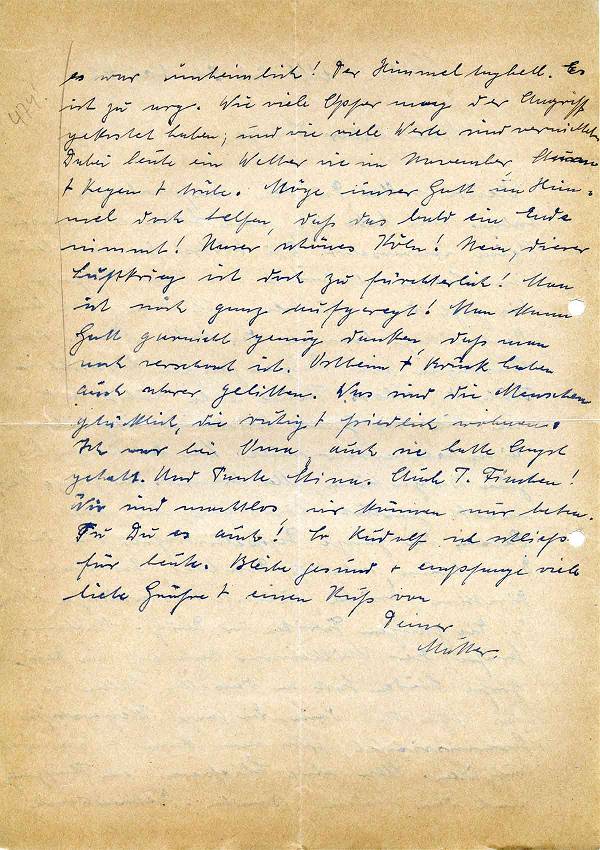 es war unheimlich! Der Himmel taghell. Es
ist zu arg. Wie viele Opfer mag der Angriff
gekostet haben, und wie viele Werte sind vernichtet.
Dabei heute ein Wetter wie im November
+ Regen + trübe. Möge unser Gott im Him-
mel doch helfen, daß das bald ein Ende
nimmt! Unser schönes Köln! Nein, dieser
Luftkrieg ist doch zu fürchterlich! Man
ist noch ganz aufgeregt! Man kann
Gott garnicht genug danken, daß man
noch verschont ist. Ostheim + Brück haben
auch schwer gelitten. Was sind die Menschen
glücklich, die ruhig + friedlich wohnen.
Ich war bei Oma, auch sie hatte Angst
gehabt. Und Tante Mina. Auch T. Finchen!
Wir sind machtlos wir können nur beten.
Tu Du es auch! So Rudolf ich schließe
für heute. Bleibe gesund + empfange viele
liebe Grüße + einen Kuß von
Deiner
Mutter.